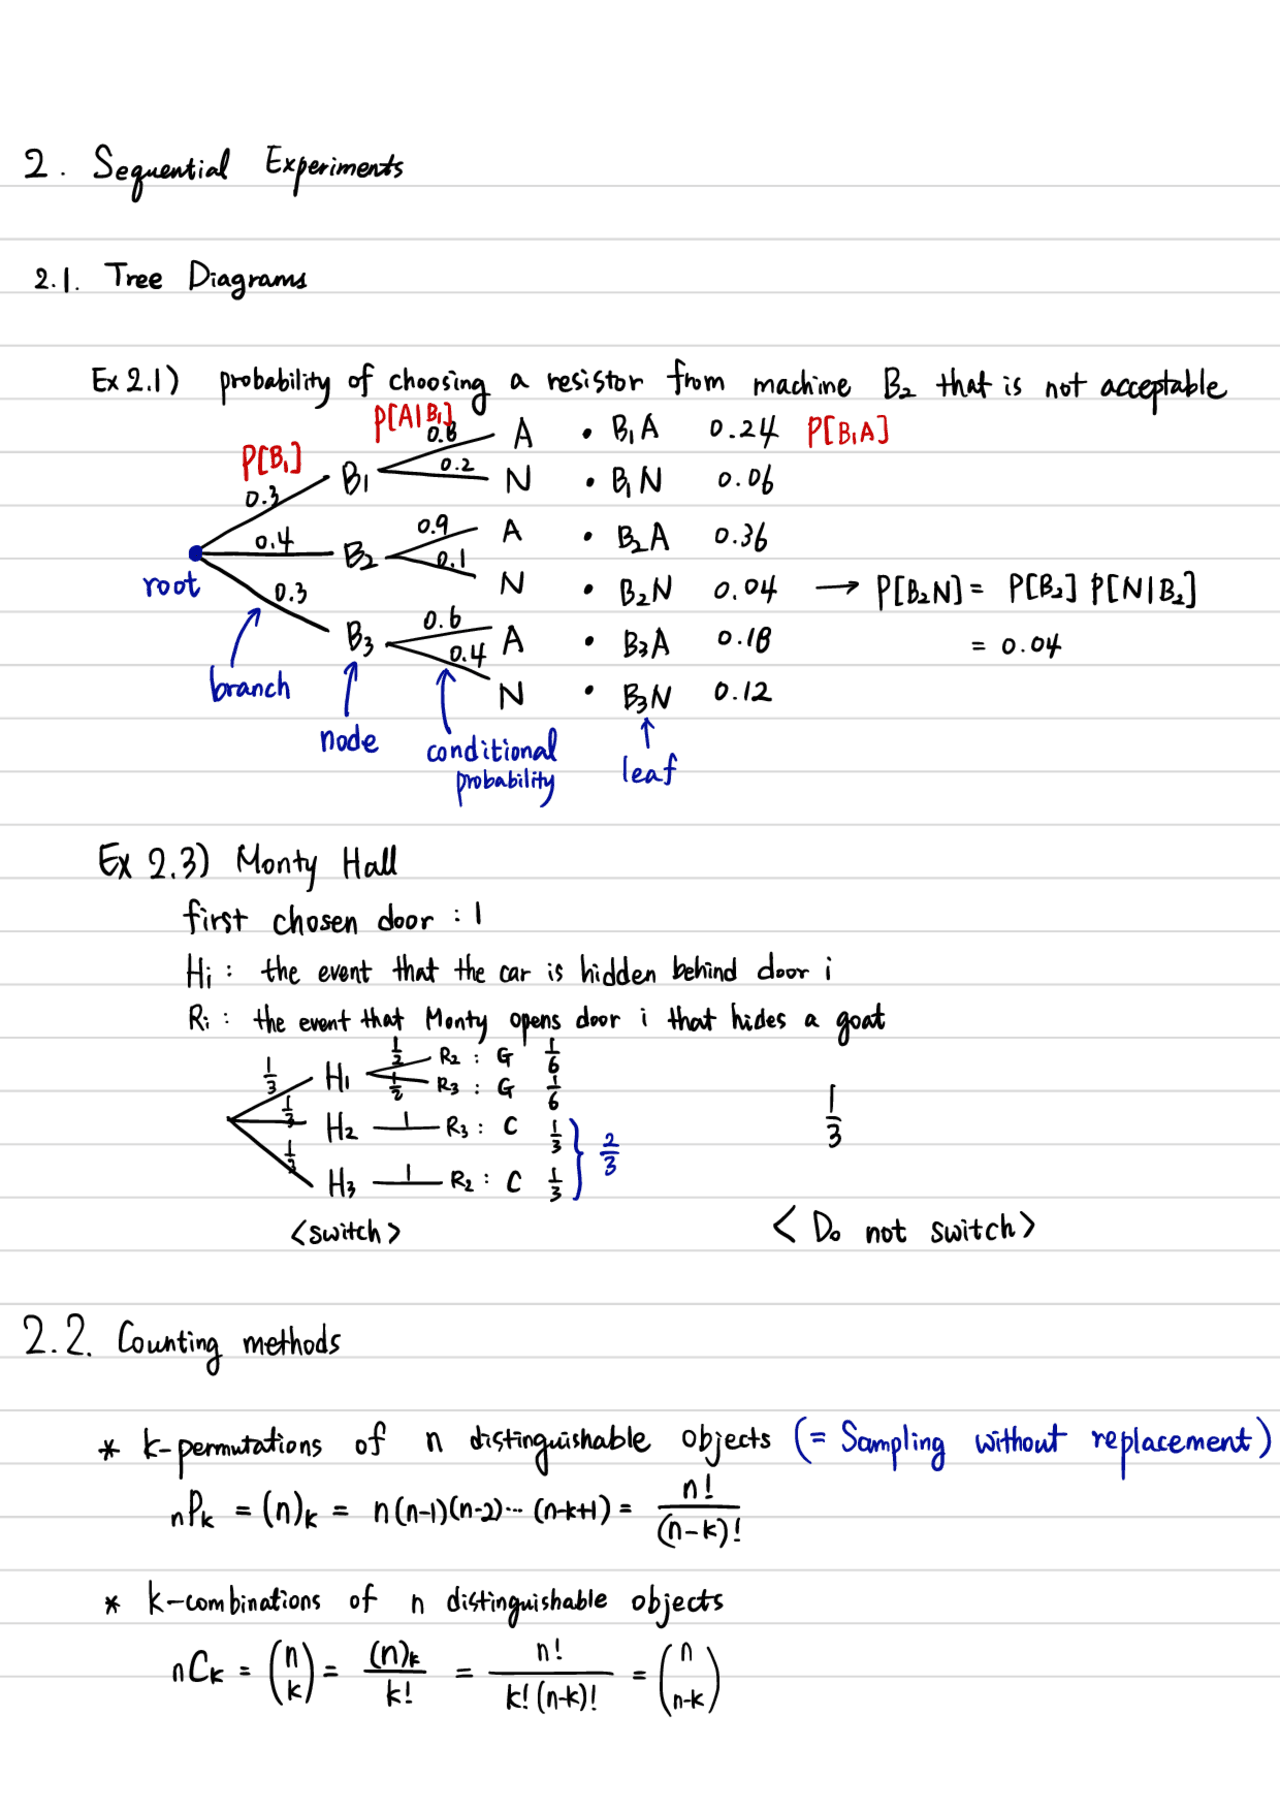 2. Sequential Experiments
2.1. Tree Diagrams
Ex 2.1) probability of choosing a resistor from machine B₂ that is not acceptable
P[A|B₁]
0.8 A • B₁A 0.24 P[B₁A]
P[B₁]
0.3 B₁ 0.2 N • B₁N 0.06
0.9 A • B₂A 0.36
0.4 B₂ 0.1
root 0.3 N • B₂N 0.04 → P[B₂N] = P[B₂] P[N|B₂]
B₃ 0.6 A • B₃A 0.18 = 0.04
0.4
branch N • B₃N 0.12
node conditional probability leaf
Ex 2.3) Monty Hall
first chosen door : 1
Hi : the event that the car is hidden behind door i
Ri : the event that Monty opens door i that hides a goat
1/3 H₁ 1/2 R₂ : G 1/6
1/2 R₃ : G 1/6
1/3 H₂ 1 R₃ : C 1/3 } 2/3 1/3
1/3 H₃ 1 R₂ : C 1/3
<switch> <Do not switch>
2.2. Counting methods
* k-permutations of n distinguishable objects (= Sampling without replacement)
nPk = (n)k = n(n-1)(n-2)··· (n-k+1) = n!/(n-k)!
* k-combinations of n distinguishable objects
nCk = (n k) = (n)k/k! = n!/k!(n-k)! = (n n-k)